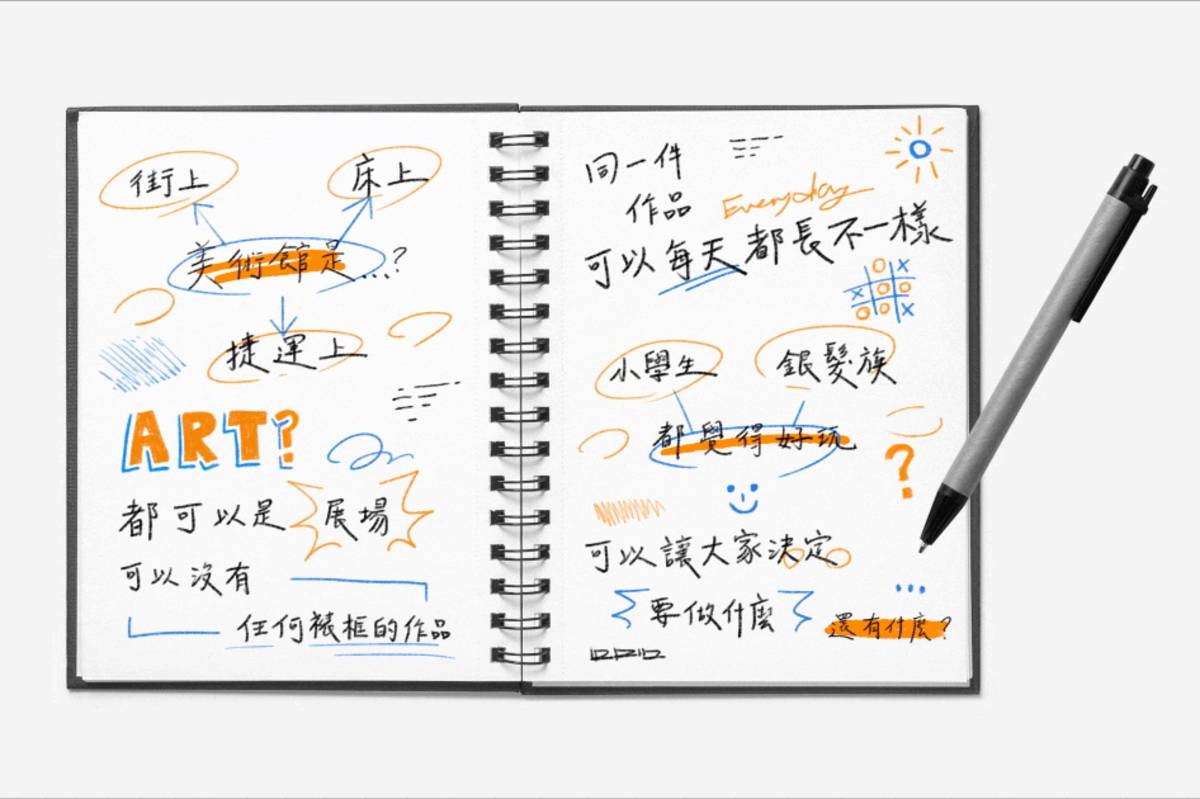 街上
床上
美術館是...?
捷運上
ART?
都可以是展場
可以沒有
任何裱框的作品
同一件
作品
Everyday
可以每天都長不一樣
小學生
銀髮族
都覺得好玩
?
可以讓大家決定
要做什麼
...
還有什麼?